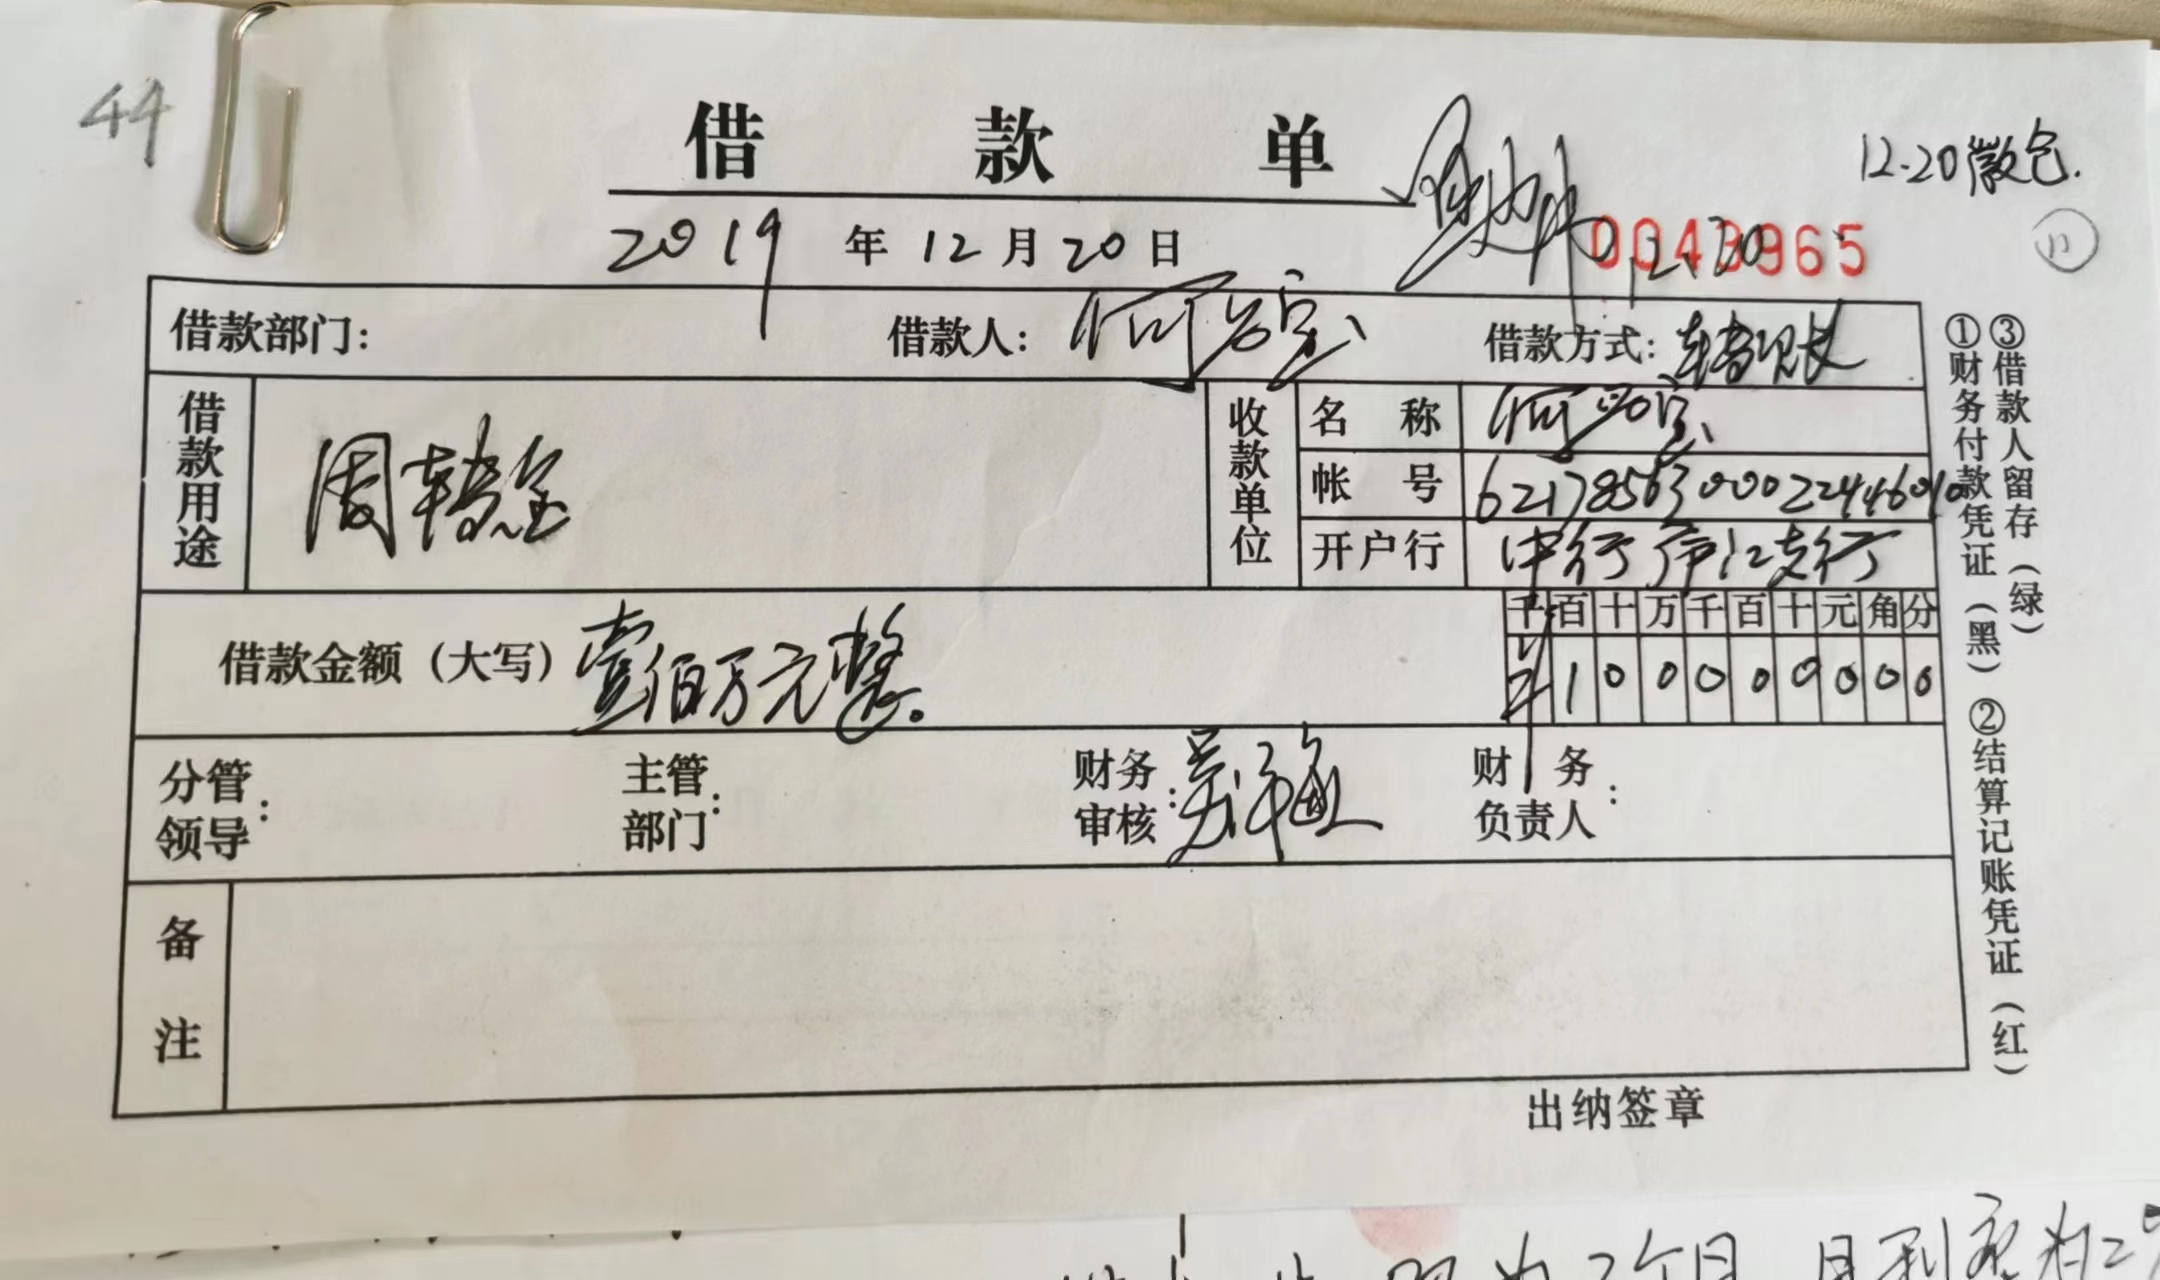 44
借款单
12.20徽仓.
2019年12月20日
12.20
0043965
11
借款部门: 借款人: 借款方式: 转账
借款用途 周转金
收款单位
名称
帐号 6217856300022446010
开户行 中行庐江支行
千百十万千百十元角分
借款金额(大写) 壹佰万元整。 ¥100000000
分管领导: 主管部门: 财务审核: 财务负责人:
备注
出纳签章
①财务付款凭证(黑) ②结算记账凭证(红)
③借款人留存(绿)
为2个月 月利率为2%